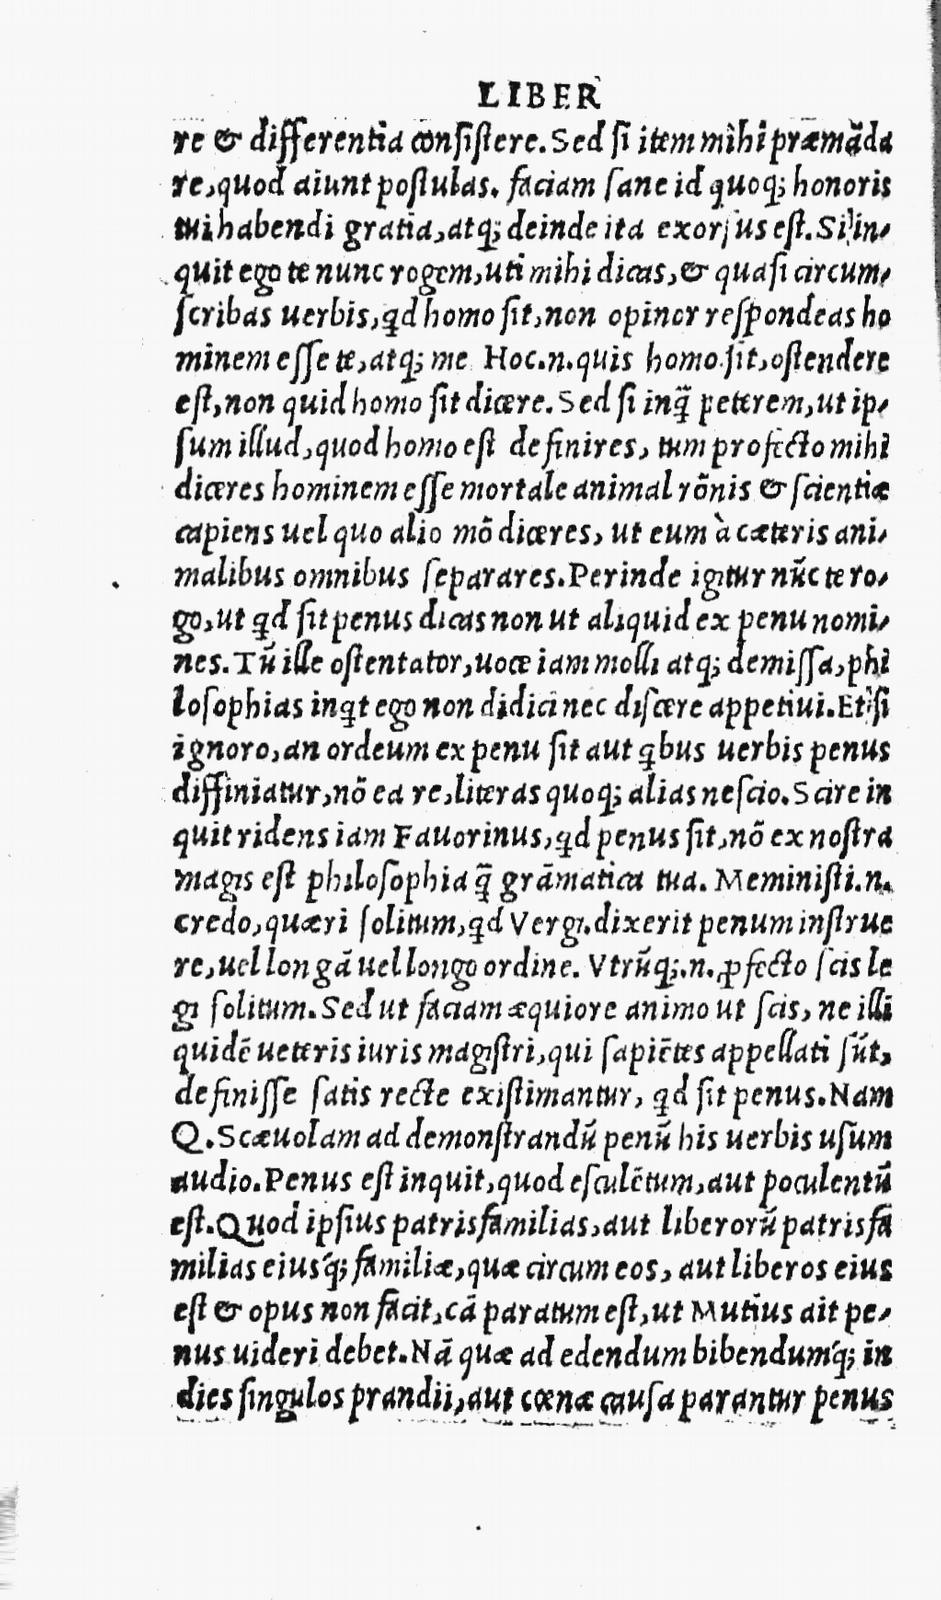 LIBER
re & differentia consistere. Sed si item mihi præmãda
re, quod aiunt postulas. faciam sane id quoq; honoris
tui habendi gratia, atq; deinde ita exorsus est. Si in-
quit ego te nunc rogem, uti mihi dicas, & quasi circum-
scribas uerbis, qd homo sit, non opinor respondeas ho
minem esse te, atq; me Hoc.n.quis homo sit, ostendere
est, non quid homo sit dicere. Sed si inq̃ peterem, ut ip-
sum illud, quod homo est definires, tum profecto mihi
diceres hominem esse mortale animal rõnis & scientiæ
capiens uel quo alio mõ diceres, ut eum à cæteris ani-
malibus omnibus separares. Perinde igitur nũc te ro-
go, ut qd sit penus dicas non ut aliquid ex penu nomi-
nes. Tũ ille ostentator, uoce iam molli atq; demissa, phi
losophias inqt ego non didici nec discere appetiui. Et si
ignoro, an ordeum ex penu sit aut qbus uerbis penus
diffiniatur, nõ ea re, literas quoq; alias nescio. Scire in
quit ridens iam Fauorinus, qd penus sit, nõ ex nostra
magis est philosophia q̃ grãmatica tua. Meministi.n.
credo, quæri solitum, qd Vergi. dixerit penum instrue
re, uel longã uel longo ordine. Vtrũq;.n. ꝓfecto scis le
gi solitum. Sed ut faciam æquiore animo ut scis, ne illi
quidẽ ueteris iuris magistri, qui sapiẽtes appellati sũt,
definisse satis recte existimantur, qd sit penus. Nam
Q. Scæuolam ad demonstrandũ penũ his uerbis usum
audio. Penus est inquit, quod esculẽtum, aut poculentũ
est. Quod ipsius patrisfamilias, aut liberorũ patrisfa
milias eiusq́; familiæ, quæ circum eos, aut liberos eius
est & opus non facit, cã paratum est, ut Mutius ait pe-
nus uideri debet. Nã quæ ad edendum bibendumq́; in
dies singulos prandii, aut cœnæ causa parantur penus